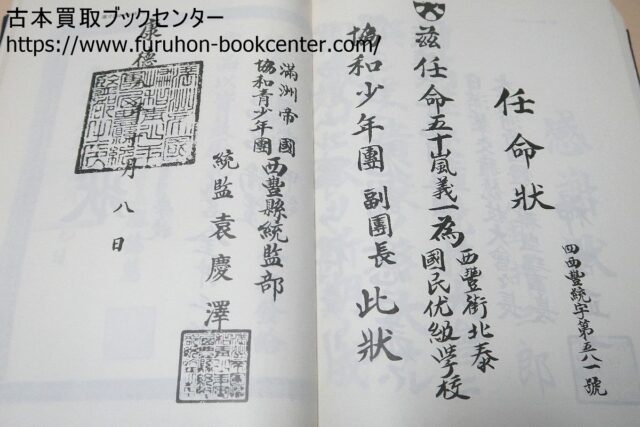 古本買取ブックセンター
https://www.furuhon-bookcenter.com/
任命狀
四西豐統字第五八一號
茲任命五十嵐義一為西豐街北泰國民优級学校
協和少年團副團長此狀
滿洲帝國協和青少年團西豐縣統監部
統監袁慶澤
康德 年十月八日